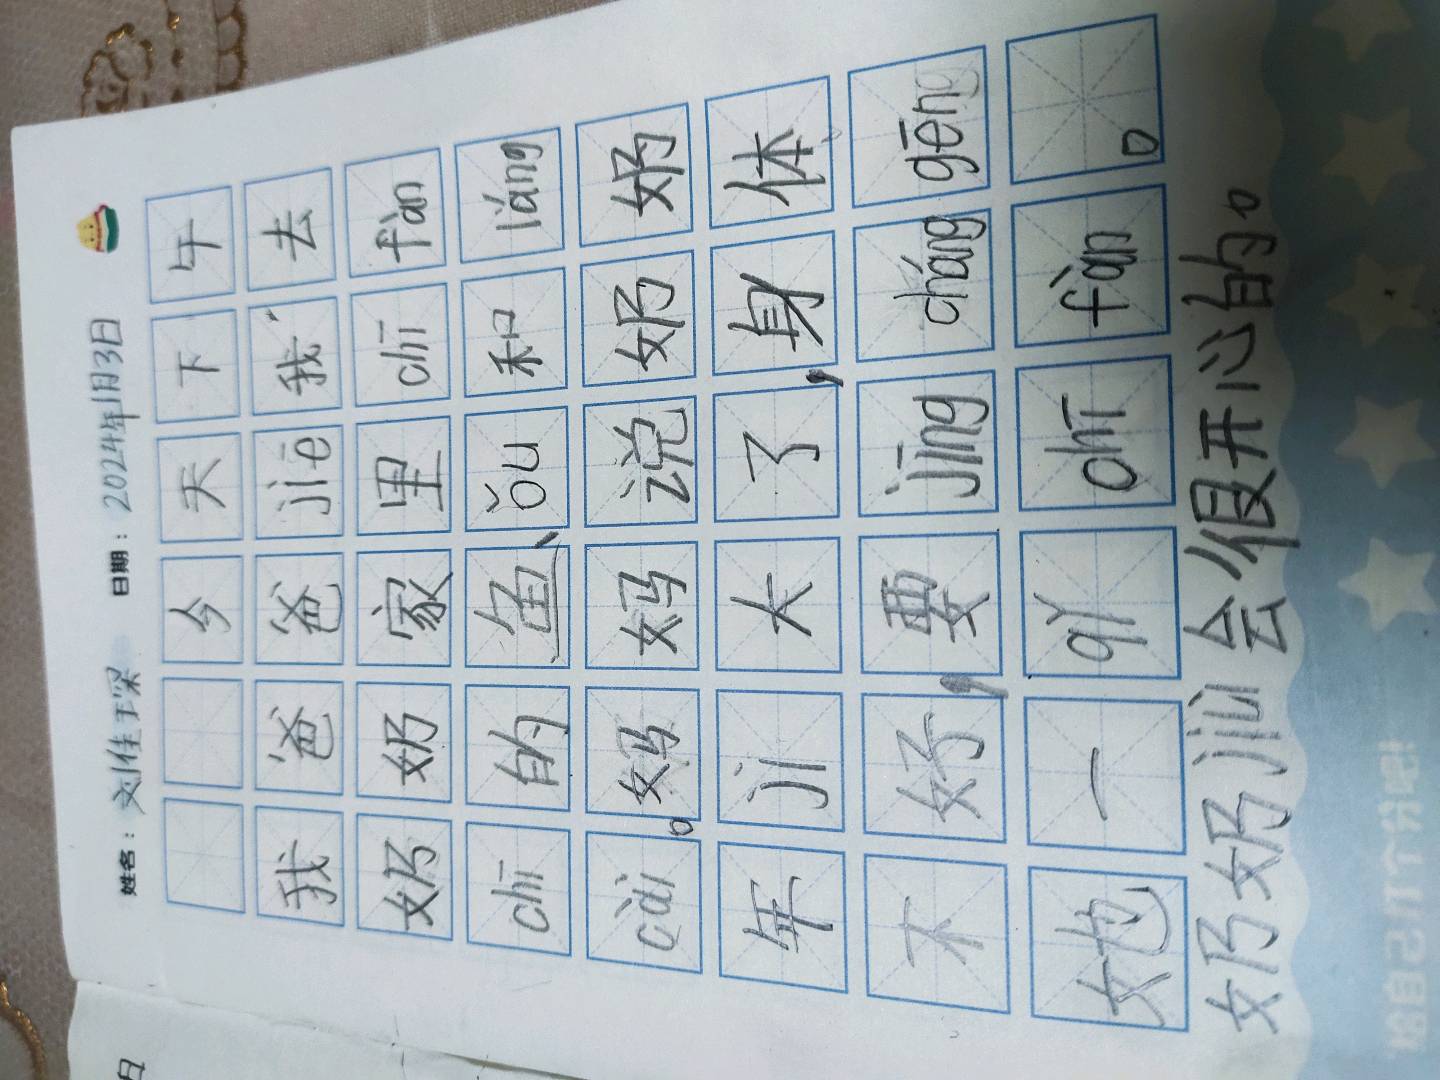 姓名：刘佳琛 日期：2024年1月3日
今天下午
我爸爸jiē我去
奶奶家里chīfàn
chī的鱼、ǒu和láng
cài。妈妈说奶奶
年jì大了，身体
不好，要jīng cháng gēng
她一qǐ chī fàn。
奶奶jiù会很开心的。
日